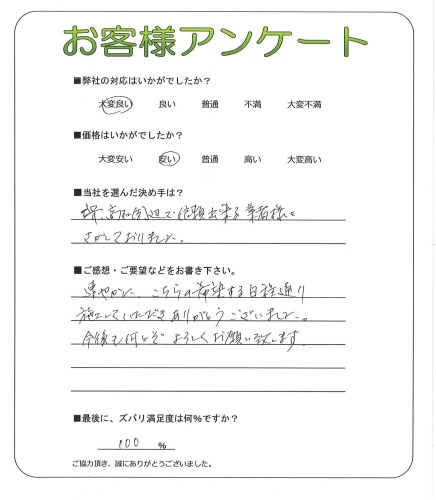 お客様アンケート
■弊社の対応はいかがでしたか？
大変良い 良い 普通 不満 大変不満
■価格はいかがでしたか？
大変安い 安い 普通 高い 大変高い
■当社を選んだ決め手は？
周辺で信頼出来る業者様を
さがしておりました。
■ご感想・ご要望などをお書き下さい。
速やかに、こちらの希望する日程通り
施工していただきありがとうございました。
今後も何とぞよろしくお願い致します。
■最後に、ズバリ満足度は何％ですか？
100 %
ご協力頂き、誠にありがとうございました。